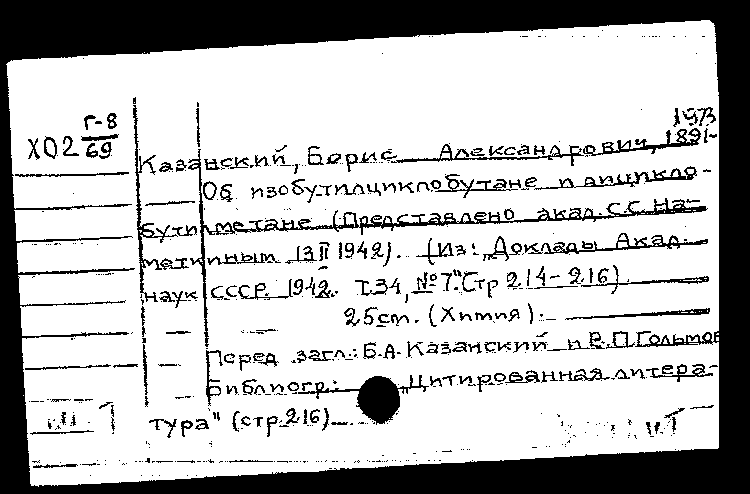 Г-8
Х02 69
1973
Казанский, Борис Александрович, 1891-
Об изобутилциклобутане и дицикло-
бутилметане (Представлено акад. С.С. На-
меткиным 13 II 1942). (Из: „Доклады Акад.
наук СССР. 1942. Т.34, №7." Стр 214-216)
25 см. (Химия).
Перед загл.: Б.А. Казанский и В.П. Гольмов
Библиогр.: „Цитированная литера-
тура" (стр. 216)